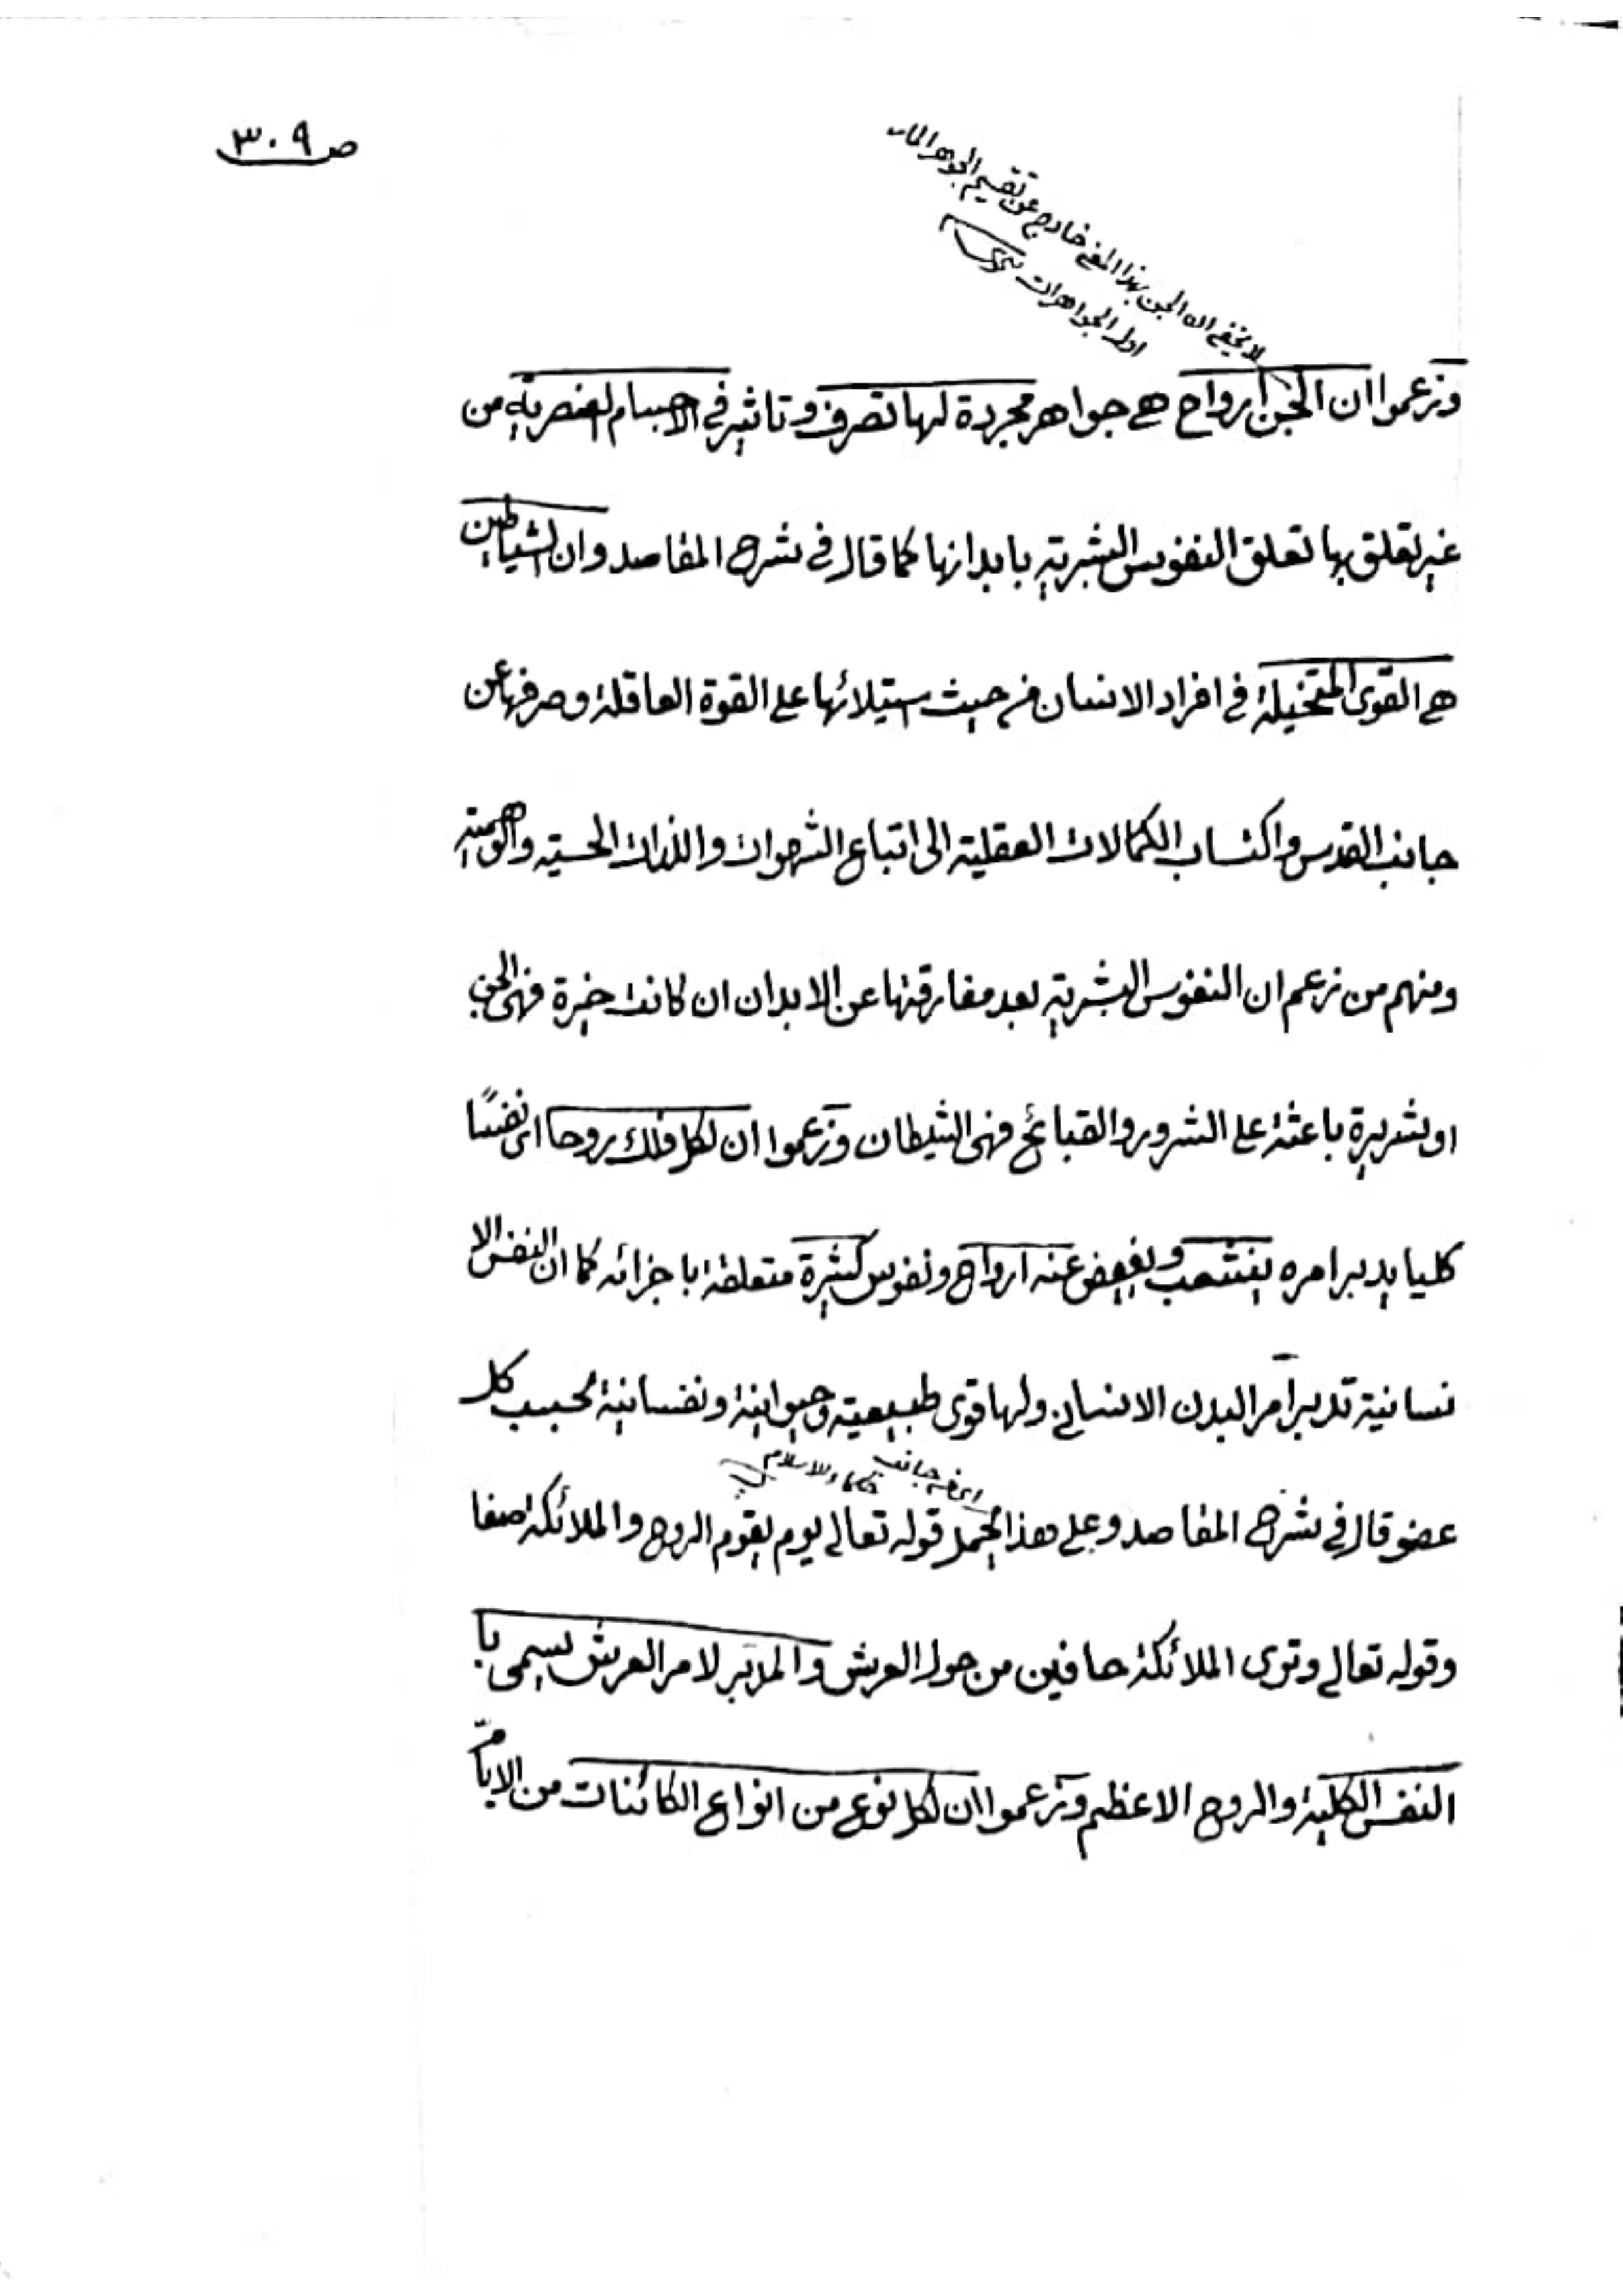 ص ٣٠٩
لا يخفى ان الجن بهذا المعنى خارج عن تقسيم الجوهر المار
اول الجواهرات
وزعموا ان الجن ارواح هي جواهر مجردة لها تصرف وتاثير في الاجسام العنصرية من
غير تعلق بها تعلق النفوس البشرية بابدانها كما قال في شرح المقاصد وان الشياطين
هي القوى المتخيلة في افراد الانسان من حيث استيلائها على القوة العاقلة وصرفها عن
جانب القدس واكتساب الكمالات العقلية الى اتباع الشهوات واللذات الحسية والوهمية
ومنهم من زعم ان النفوس البشرية بعد مفارقتها عن الابدان ان كانت خيرة فهي الجن
او شريرة باعثة على الشرور والقبائح فهي الشيطان وزعموا ان لكل فلك روحا اى نفسًا
كليا يدبر امره ينشعب ويفيض عنه ارواح ونفوس كثيرة متعلقة باجزائه كما ان النفس الا
نسانية تدبر امر البدن الانسانى ولها قوى طبيعية وحيوانية ونفسانية بحسب كل
اى من جانب حكماء الاسلام
عضو قال في شرح المقاصد وعلى هذا يحمل قوله تعالى يوم يقوم الروح والملائكة صفا
وقوله تعالى وترى الملائكة حافين من حول العرش والمدبر لامر العرش يسمى با
النفس الكلية والروح الاعظم وزعموا ان لكل نوع من انواع الكائنات من الايام